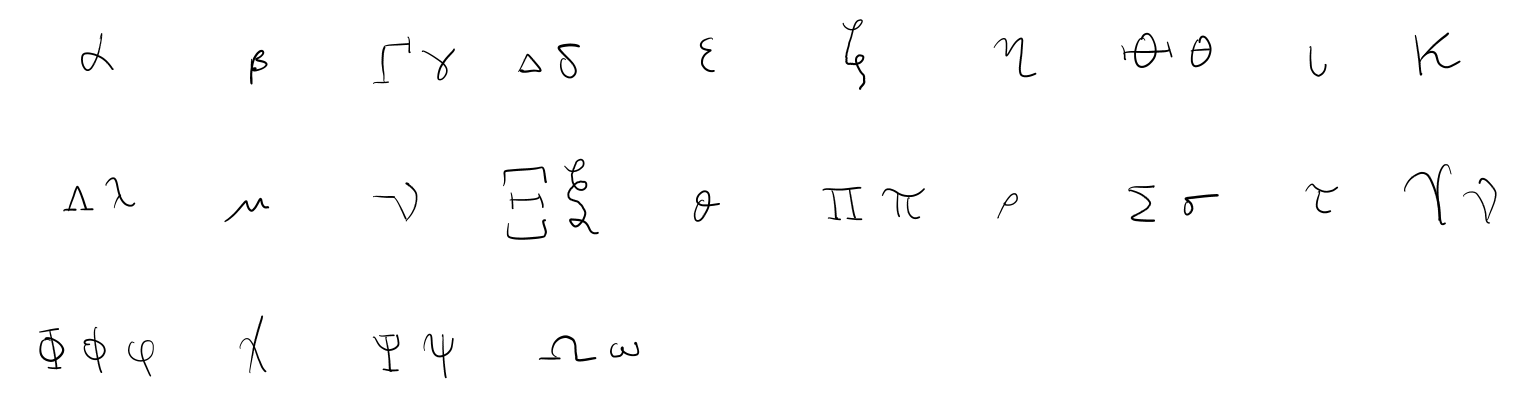 α β Γ γ Δ δ ε ζ η Θ θ ι κ
Λ λ μ ν Ξ ξ θ Π π ρ Σ σ τ ϒ ν
Φ ϕ φ χ Ψ ψ Ω ω